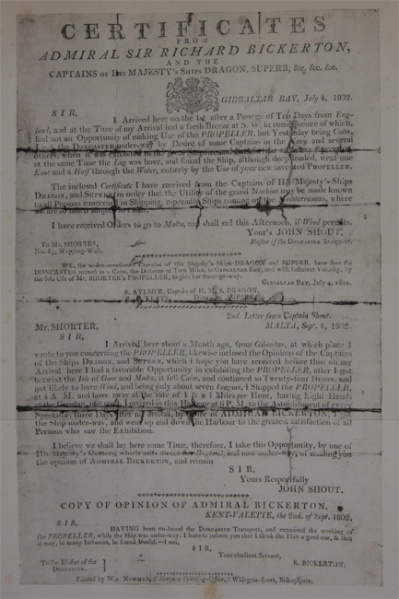 CERTIFICATES
FROM
ADMIRAL SIR RICHARD BICKERTON,
AND THE
CAPTAINS OF HIS MAJESTY's SHIPS DRAGON, SUPERB, &c. &c. &c.
GIBRALTAR BAY, July 4, 1802.
SIR,
I Arrived here on the 1st after a Passage of Ten Days from Eng-
land, and at the Time of my Arrival had a fresh Breeze at S. W. in consequence of which,
had not an Opportunity of making Use of the PROPELLER, but Yesterday being Calm,
the DONCASTER under-way by Desire of some Captains in the Navy and several
others, when it was
at the same Time the Log was hove, and found the Ship, although deep loaded, went one
Knot and a Half through the Water, entirely by the Use of your new invented PROPELLER.
The inclosed Certificate I have received from the Captains of His Majesty's Ships
DRAGON, and SUPERB in order that the Utility of the grand Machine may be made known
to all Persons concerned in Shipping, especially Ships coming up the Mediterranean, where
I have received Orders to go to Malta, and shall sail this Afternoon, if Wind permits.
Your's JOHN SHOUT,
To Mr. SHORTER,
Master of the DONCASTER Transport.
No. 65, Wapping-Wall.
WE, the under-mentioned Captains of His Majesty's Ships DRAGON and SUPERB, have seen the
DONCASTER moved in a Calm, the Distance of Two Miles, in GIBRALTAR BAY, and with sufficient Velocity, by
the sole Use of Mr. SHORTER'S PROPELLER, to give her Steerage-way.
GIBRALTAR BAY, July 4, 1802.
S. AYLMER, Captain of H. M. S. DRAGON,
2nd. Letter from Captain Shout.
MALTA, Sept. 1802.
Mr. SHORTER,
SIR,
I Arrived here about a Month ago, from Gibraltar, at which place I
wrote to you concerning the PROPELLER, likewise inclosed the Opinions of the Captains
of the Ships DRAGON, and SUPERB, which I hope you have received before this; on my
Arrival here I had a favorable Opportunity in exhibiting the PROPELLER, after I got
betwixt the Isle of Goza and Malta, it fell Calm, and continued so Twenty-four Hours; and
not likely to have Wind, and being only about seven Leagues, I Shipped the PROPELLER,
at 4 A. M. and have away at the rate of Miles per Hour, having Eight Hands
at the
Spectator; three Days after my Arrival, by Desire of ADMIRAL BICKERTON, I got
the Ship under-way, and went up and down the Harbour to the greatest satisfaction of all
Persons who saw the Exhibition.
I believe we shall lay here some Time, therefore, I take this Opportunity, by one of
His Majesty's Cutters, which sails direct for England, and now under-way, of sending you
the opinion of ADMIRAL BICKERTON, and remain
SIR,
Yours Respectfully
JOHN SHOUT.
COPY OF OPINION OF ADMIRAL BICKERTON.
KENT-VALETTE, the 2nd. of Sept. 1802.
SIR,
HAVING been on-board the DONCASTER Transport, and examined the working of
the PROPELLER, while the Ship was under-way. I have to inform you that I think the Plan a good one, & that
it may, in many Instances, be found Useful.—I am,
SIR,
Your obedient Servant,
To the Master of the
R. BICKERTON.
DONCASTER.
Printed by Printing-Office, Bishopsgate.